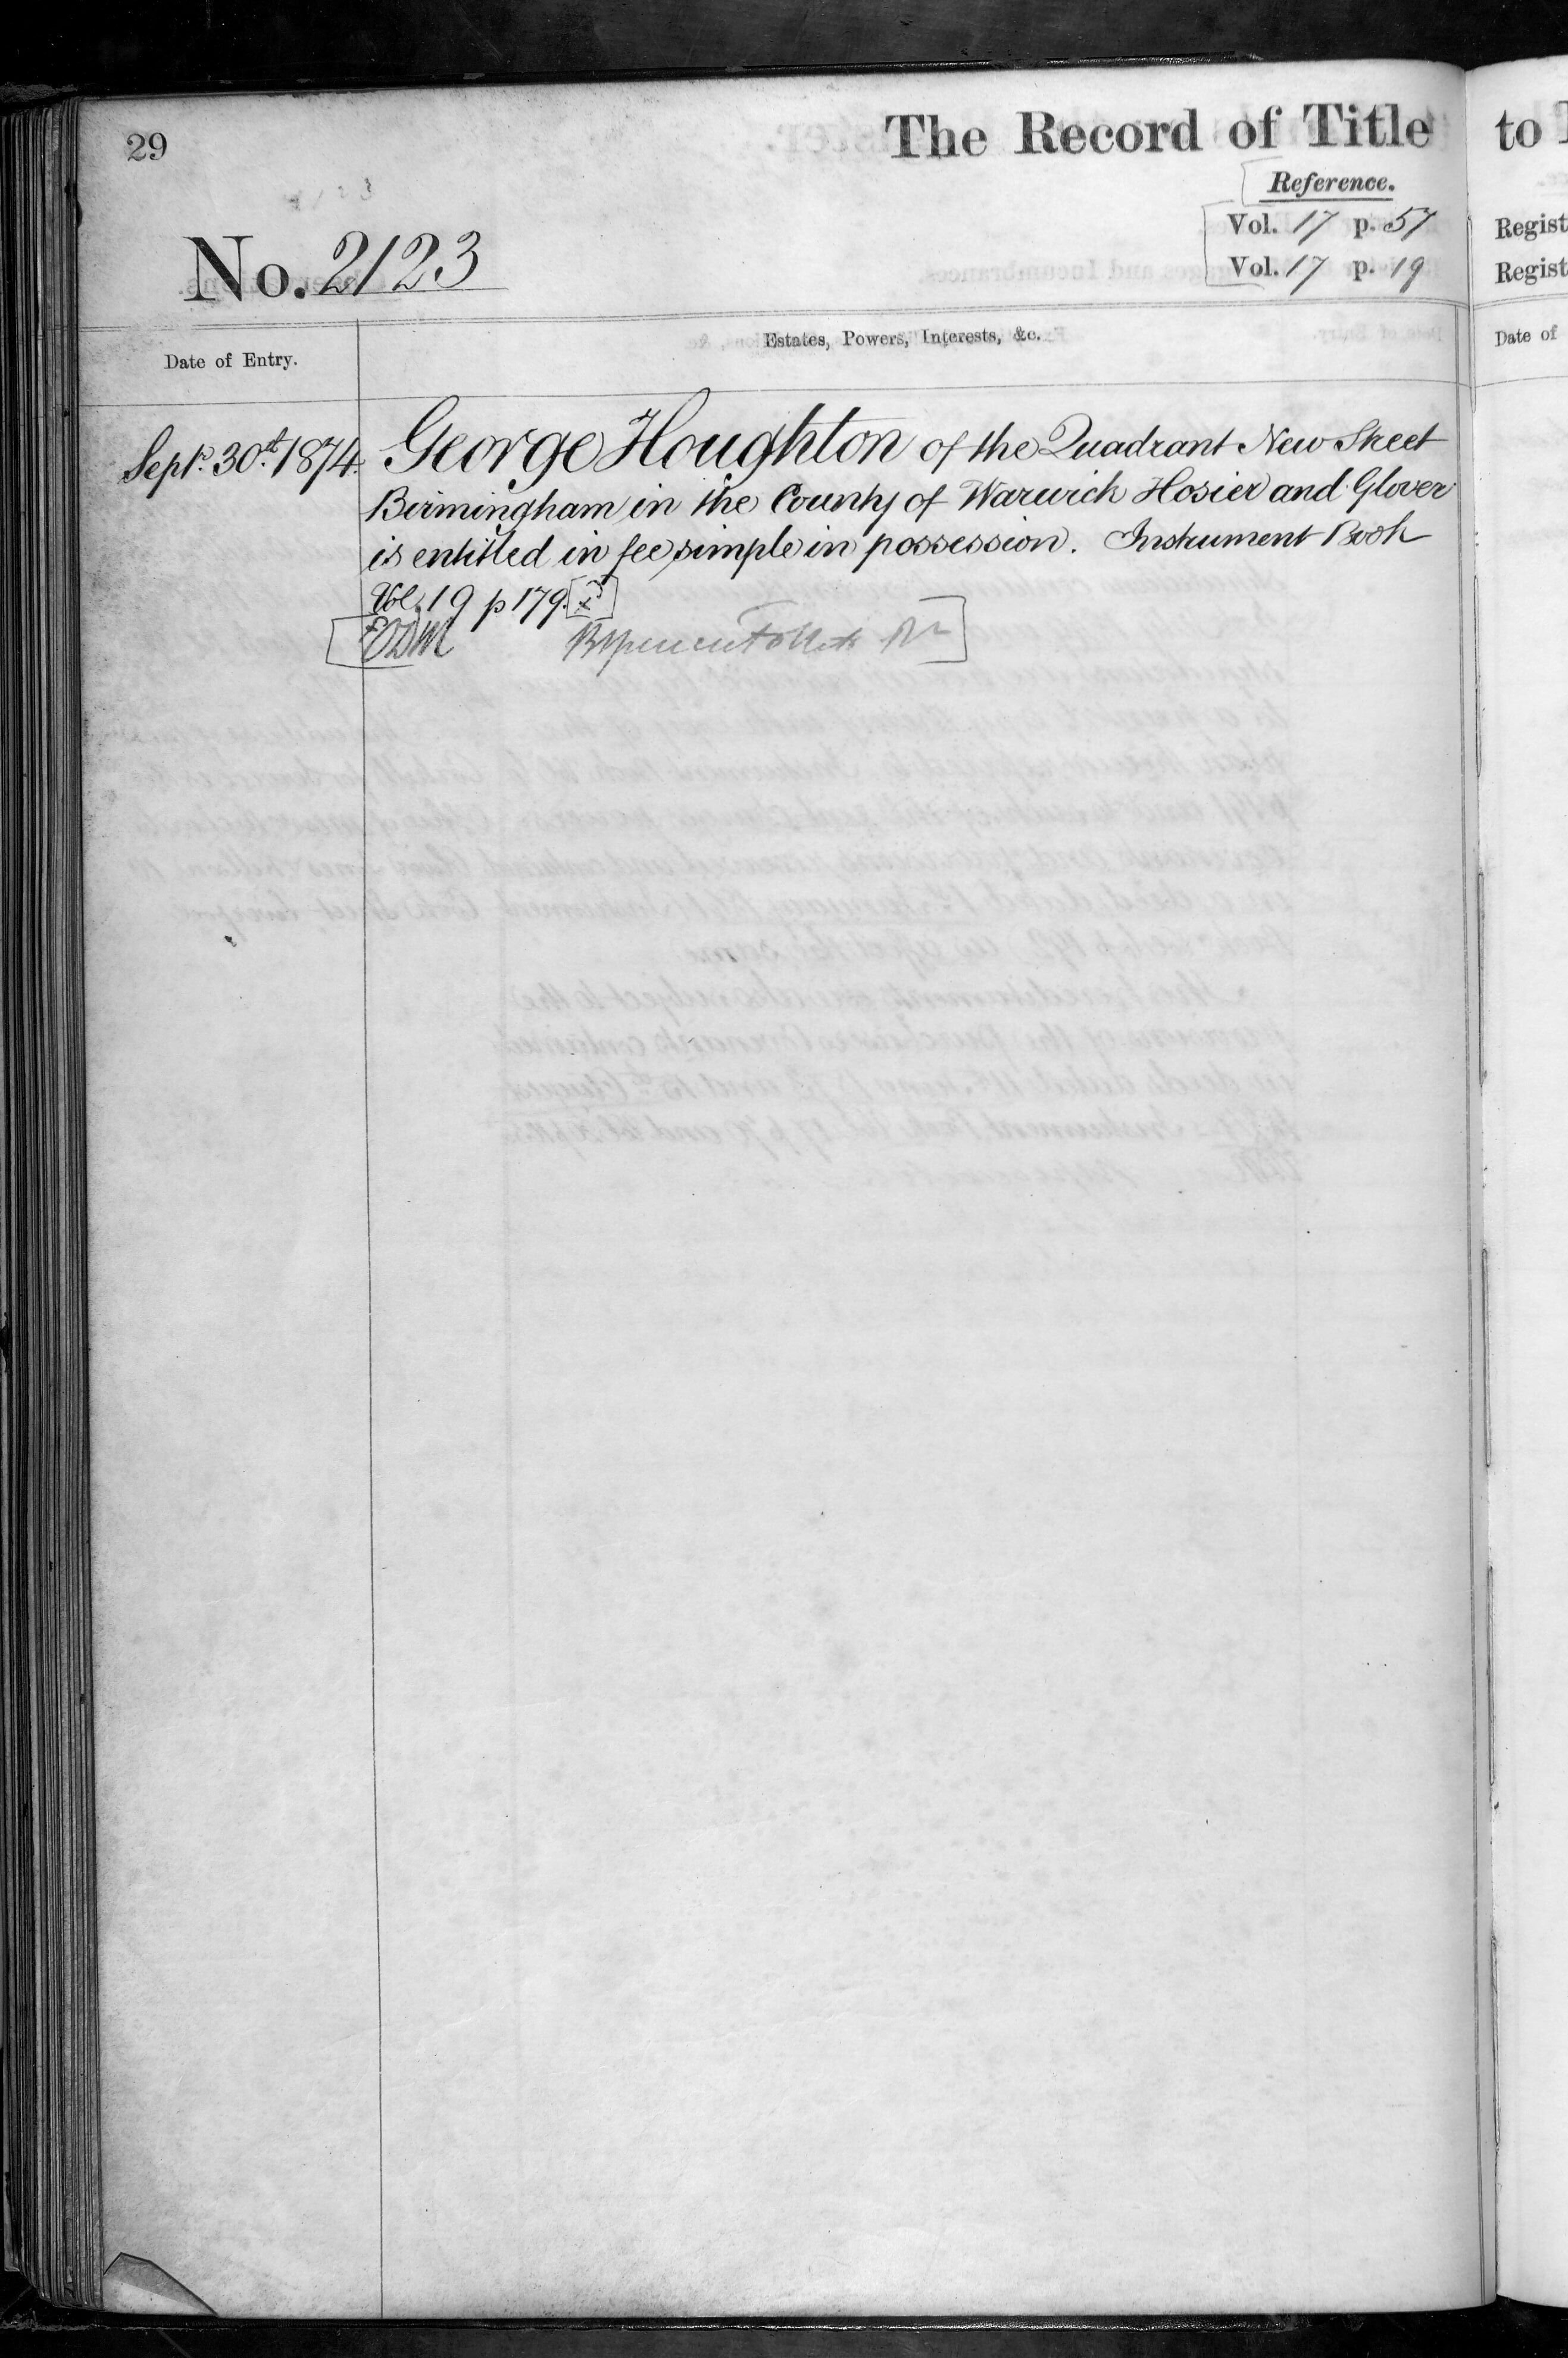 29
The Record of Title
Reference.
Vol. 17 p. 57
Vol. 17 p. 19
No. 2123
Date of Entry.
Estates, Powers, Interests, &c.
Sept. 30t. 1874.
George Houghton of the Quadrant New Street
Birmingham in the County of Warwick Hosier and Glover
is entitled in fee simple in possession. Instrument Book
Vol. 19 p 179.
to
Regist
Regist
Date of